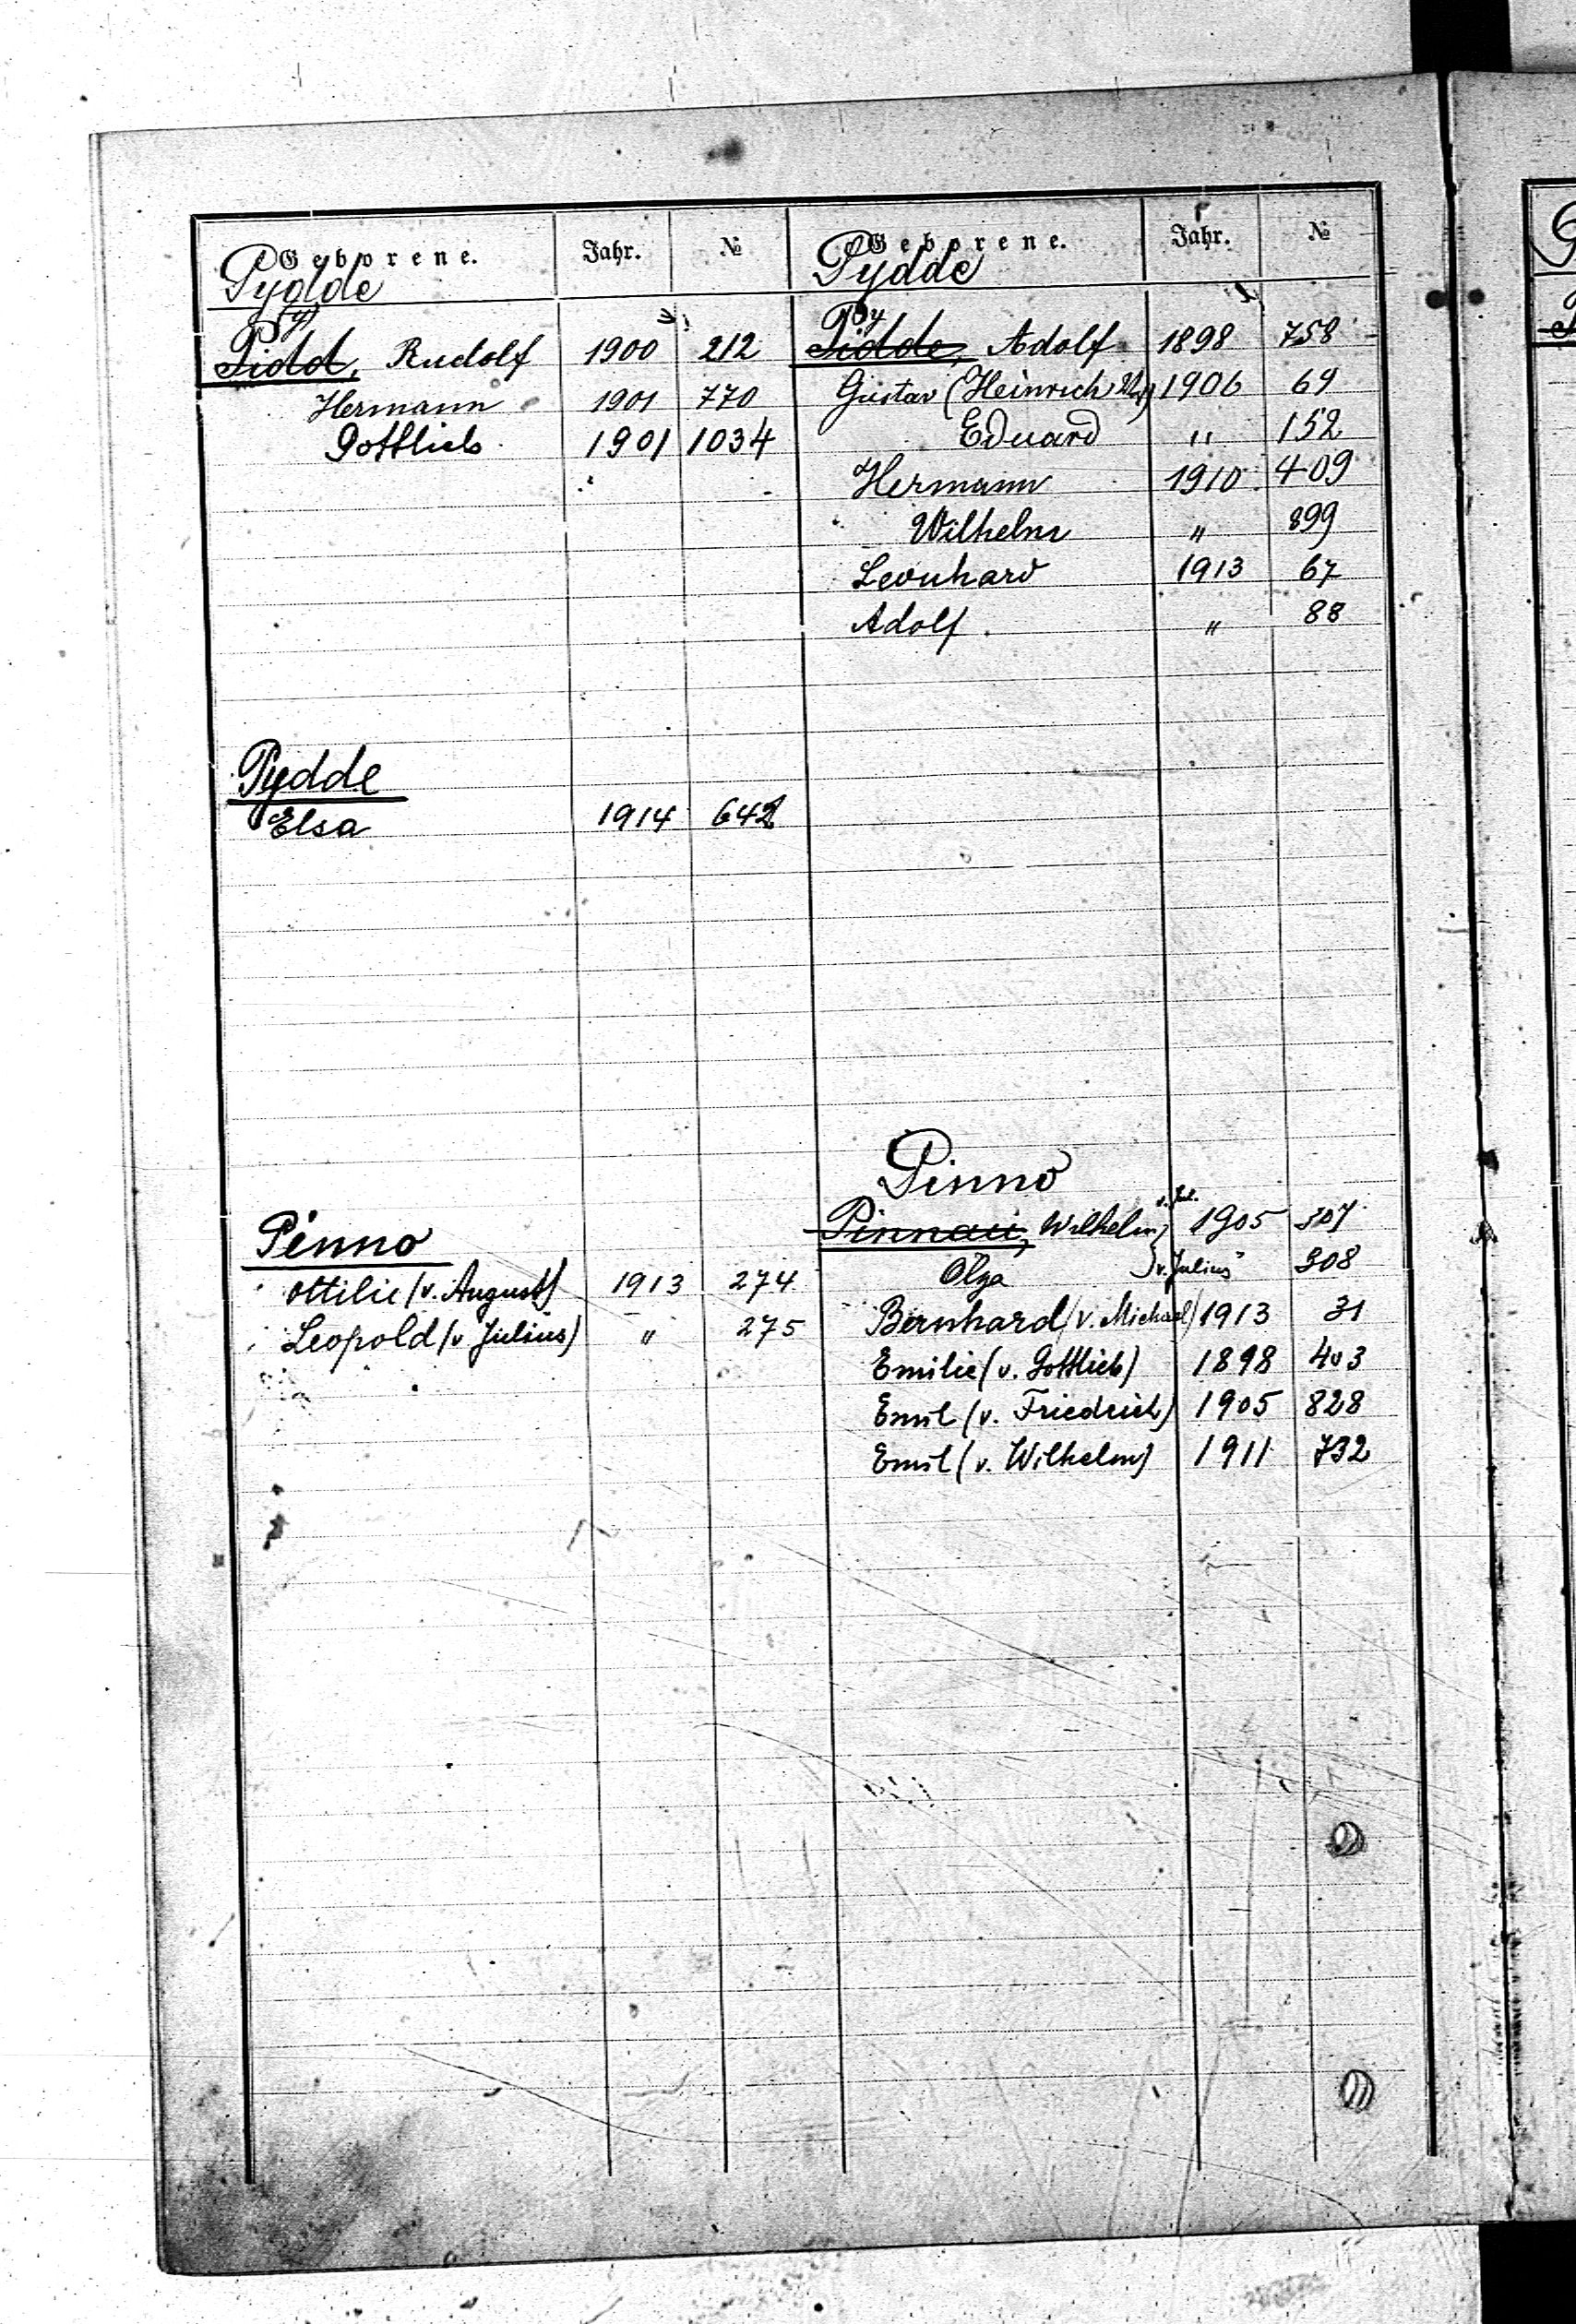 Geborene. Jahr. №
Pydde
(y)
Pidd, Rudolf 1900 212
Hermann 1901 770
Gottlieb 1901 1034
Pydde
Elsa 1914 642
Pinno
Ottilie (v. August) 1913 274
Leopold (v Julius) " 275
Geborene. Jahr. №
Pydde
Py
Pidde, Adolf 1898 758
Gustav (Heinrich 1906 69
Eduard " 152
Hermann 1910 409
Wilhelm " 899
Leonhard 1913 67
Adolf. " 88
Pinno
Pinnau, Wilhelm 1905 307
Olga v. Julius " 308
Bernhard (v. Michael) 1913 31
Emilie (v. Gottlieb) 1898 403
Emil (v. Friedrich) 1905 828
Emil (v. Wilhelm) 1911 732